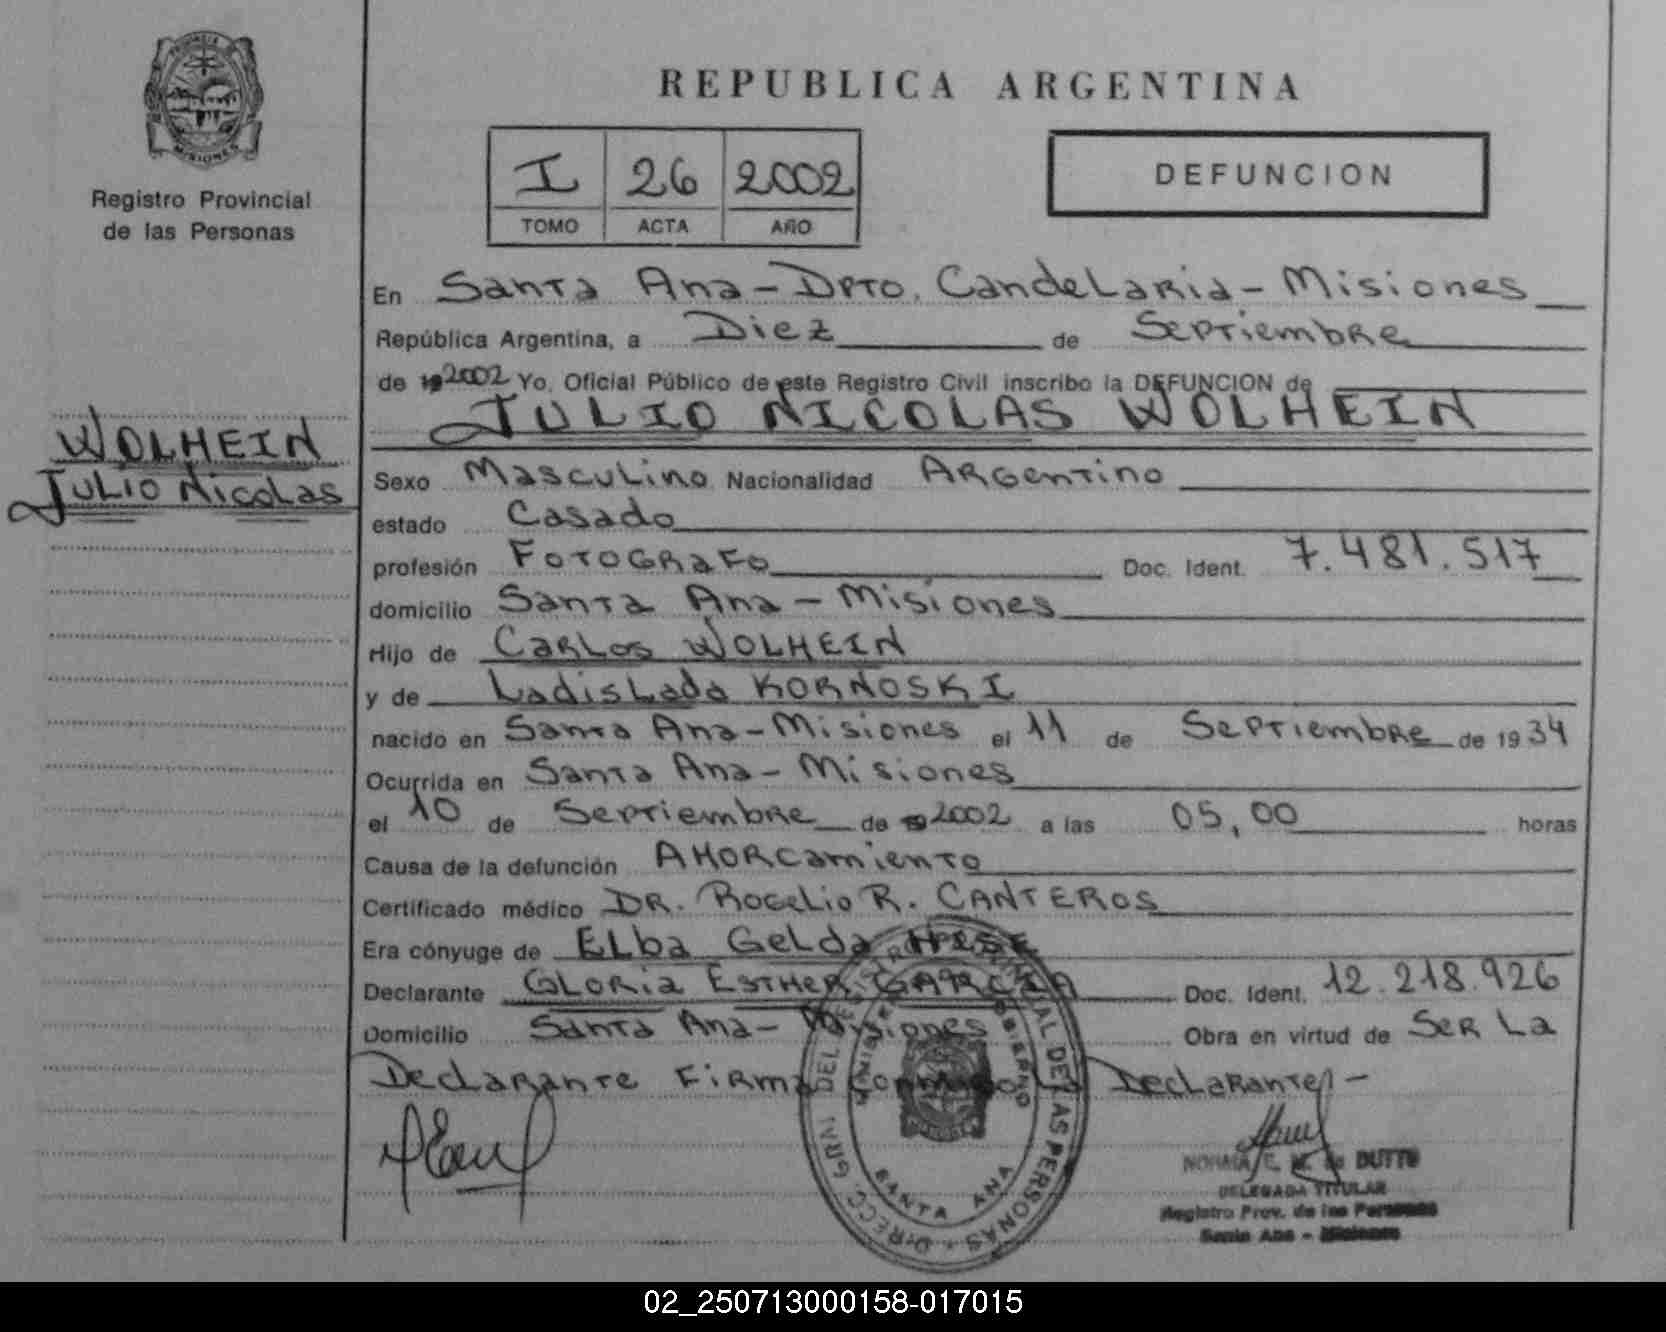 REPUBLICA ARGENTINA
PROVINCIA DE
MISIONES
Registro Provincial
de las Personas
I 26 2002
TOMO ACTA AÑO
DEFUNCION
En Santa Ana - Dpto. Candelaria - Misiones
República Argentina, a Diez de Septiembre
de 19 2002 Yo, Oficial Público de este Registro Civil inscribo la DEFUNCION de
JULIO NICOLAS WOLHEIN
WOLHEIN
Julio Nicolas
Sexo Masculino Nacionalidad Argentino
estado Casado
profesión Fotografo Doc. Ident. 7.481.517
domicilio Santa Ana - Misiones
Hijo de Carlos WOLHEIN
y de Ladislada KORNOSKI
nacido en Santa Ana - Misiones el 11 de Septiembre de 1934
Ocurrida en Santa Ana - Misiones
el 10 de Septiembre de 19 2002 a las 05,00 horas
Causa de la defunción Ahorcamiento
Certificado médico DR. Rogelio R. CANTEROS
Era cónyuge de Elba Gelda
Declarante Gloria Esther GARCIA Doc. Ident. 12.218.926
Domicilio Santa Ana - Misiones Obra en virtud de Ser La
Declarante Firma Conmigo La Declarante -
DIRECC. GRAL. DEL REGISTRO PROVINCIAL DE LAS PERSONAS
MINISTERIO DE GOBIERNO
SANTA ANA
NORMA E. de DUTTO
DELEGADA TITULAR
Registro Prov. de las Personas
Santa Ana - Misiones
02_250713000158-017015